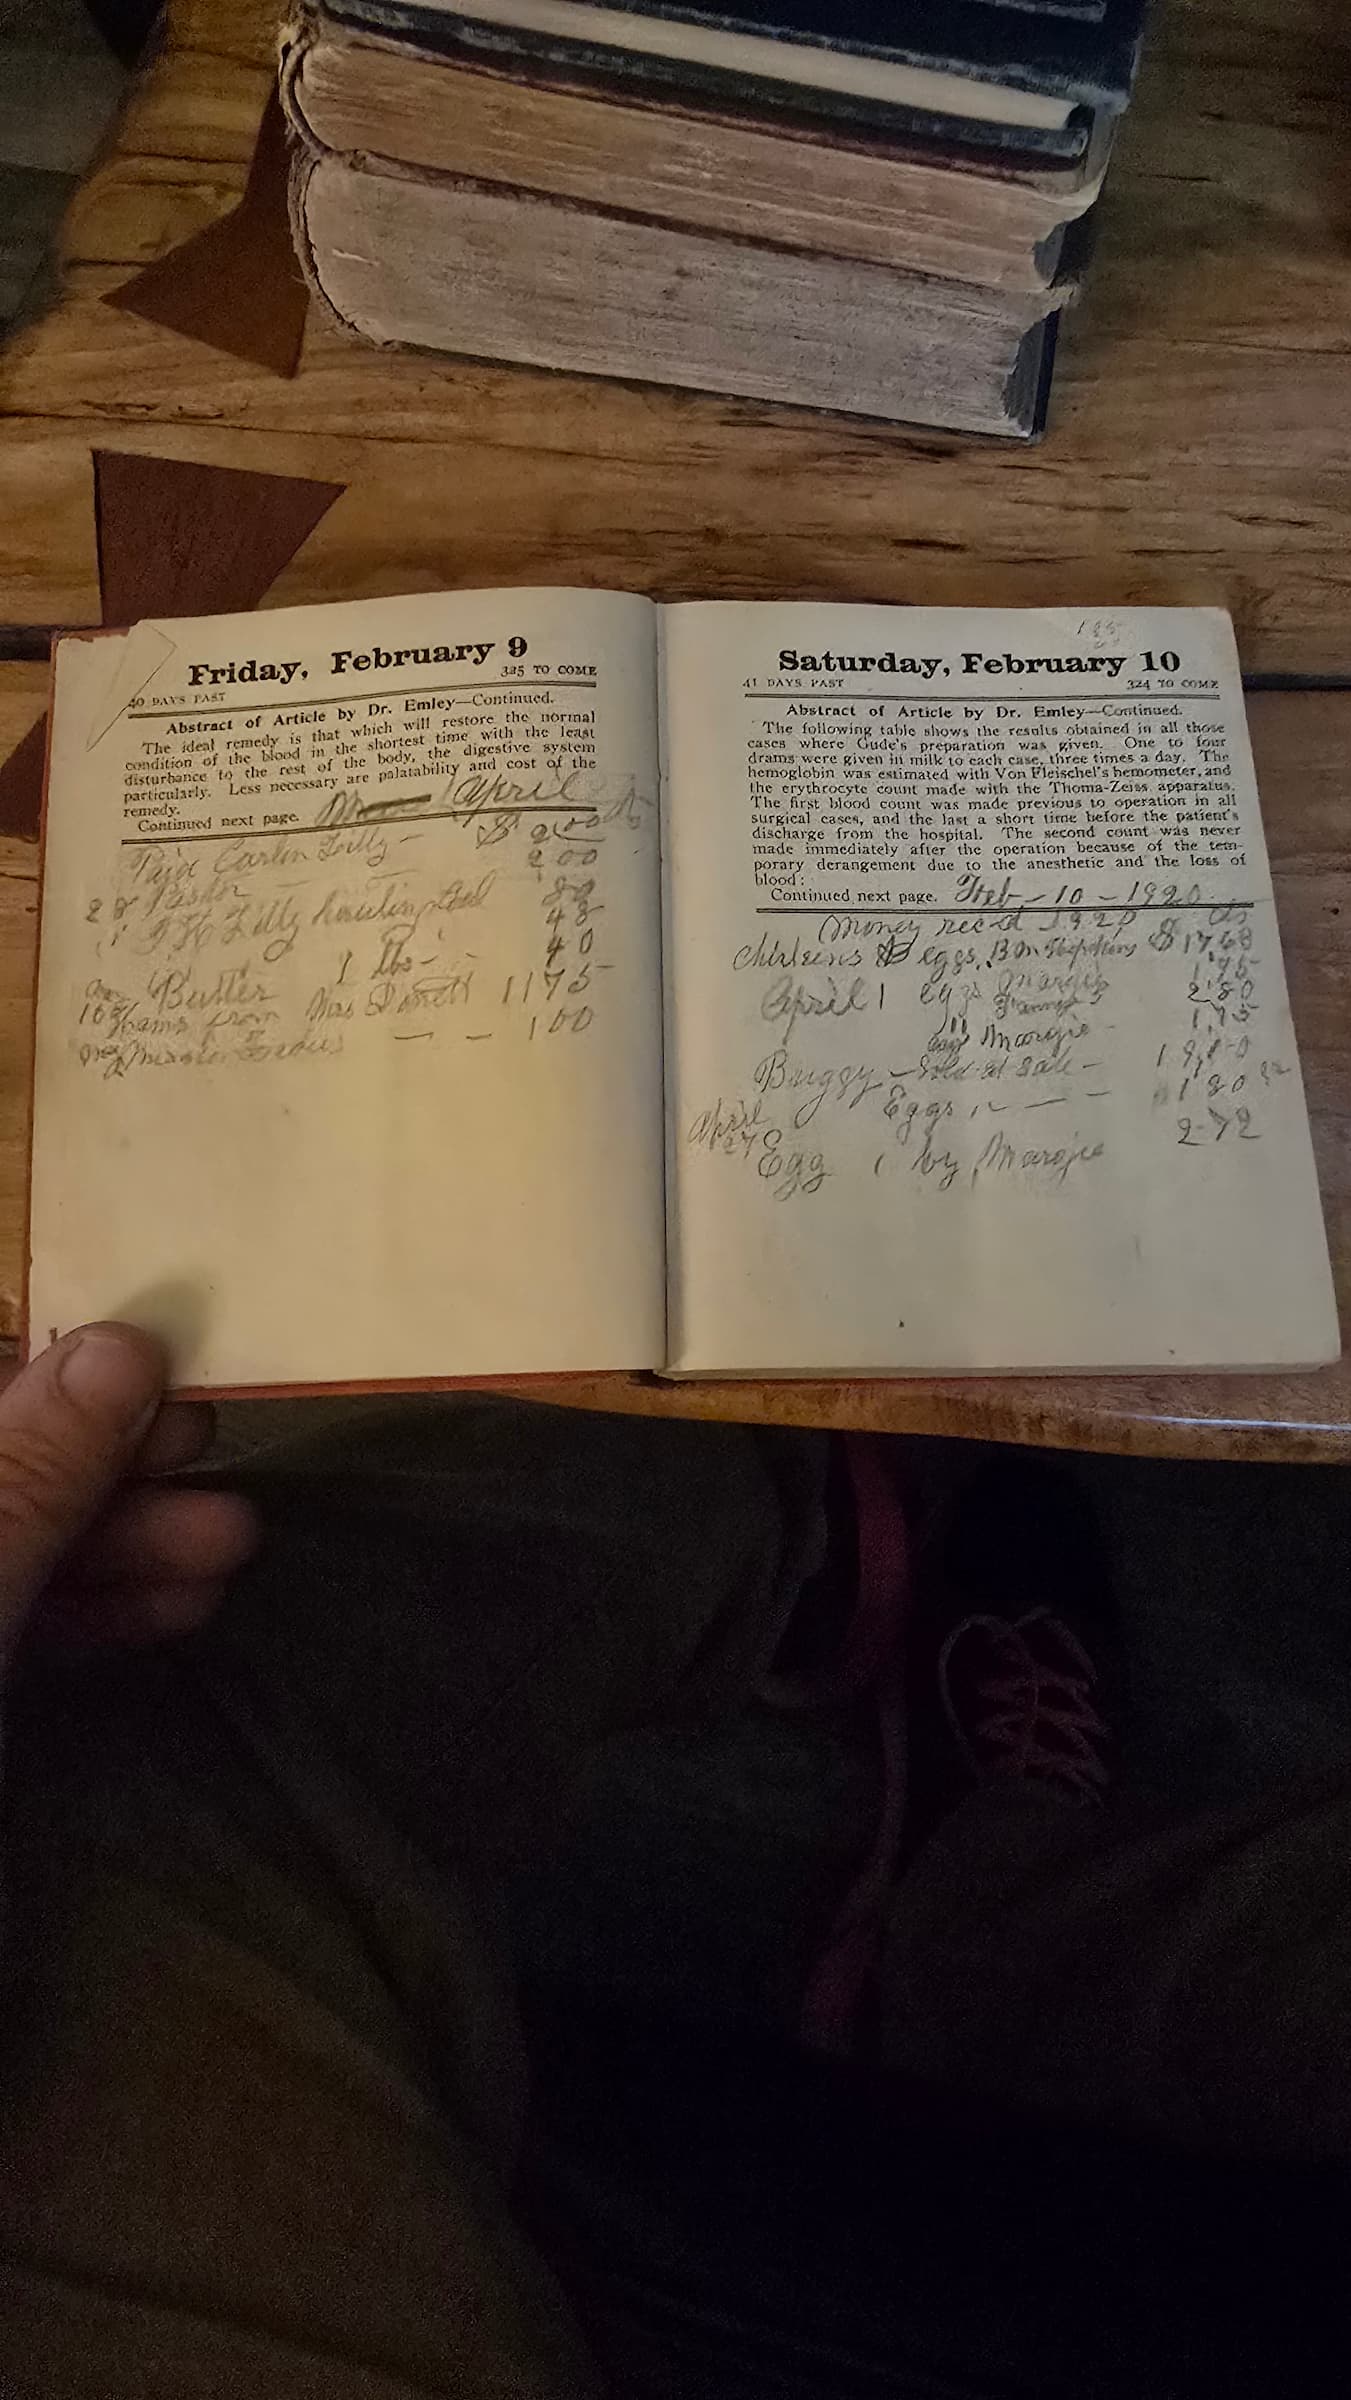 Friday, February 9
40 DAYS PAST 325 TO COME
Abstract of Article by Dr. Emley—Continued.
The ideal remedy is that which will restore the normal
condition of the blood in the shortest time with the least
disturbance to the rest of the body, the digestive system
particularly. Less necessary are palatability and cost of the
remedy.
Continued next page. April
Paid Carlin Lilly — $ 2 00
28 Pastor — — 2 00
Lilly hauling 80
48
9 lbs — 40
Butter
Hams from Mrs 11 75
Mission — — 1 00
Saturday, February 10
41 DAYS PAST 324 TO COME
Abstract of Article by Dr. Emley—Continued.
The following table shows the results obtained in all those
cases where Gude's preparation was given. One to four
drams were given in milk to each case, three times a day. The
hemoglobin was estimated with Von Fleischel's hemometer, and
the erythrocyte count made with the Thoma-Zeiss apparatus.
The first blood count was made previous to operation in all
surgical cases, and the last a short time before the patient's
discharge from the hospital. The second count was never
made immediately after the operation because of the tem-
porary derangement due to the anesthetic and the loss of
blood:
Continued next page. Feb - 10 - 1920
Money rec d 1920 $
Chickens & eggs, $ 17 68
April 1 eggs Margie 1.75
" 2 80
eggs Margie - 1,75
Buggy — Sold at Sale —
Eggs, — — — 1 80
April
27 Egg, by Margie 2 72